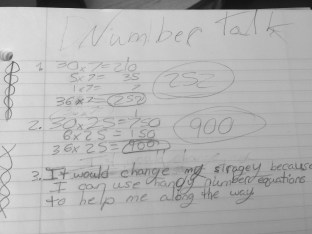 Number Talk
1. 30x7=210
5x7= 35
1x7= 7
36x7=252
252
2. 30x25=750
6x25=150
36x25=900
900
3. It would change my stragey because
I can use handy number equations
to help me along the way